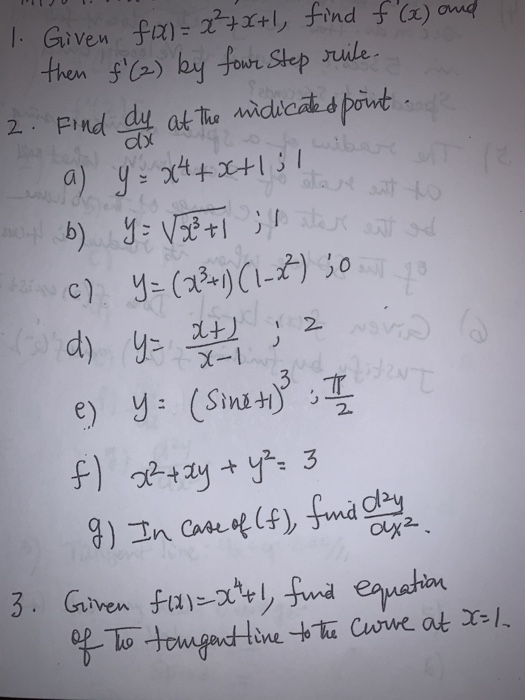 1. Given f(x) = x²+x+1, find f'(x) and
then f'(2) by four step rule.
2. Find dy/dx at the indicated point.
a) y = x⁴+x+1 ; 1
b) y = √(x³+1) ; 1
c) y = (x³+1)(1-x²) ; 0
d) y = (x+1)/(x-1) ; 2
e) y = (Sinx+1)³ ; π/2
f) x²+xy+y² = 3
g) In case of (f), find d²y/dx².
3. Given f(x) = x⁴+1, find equation
of the tangent line to the curve at x=1.